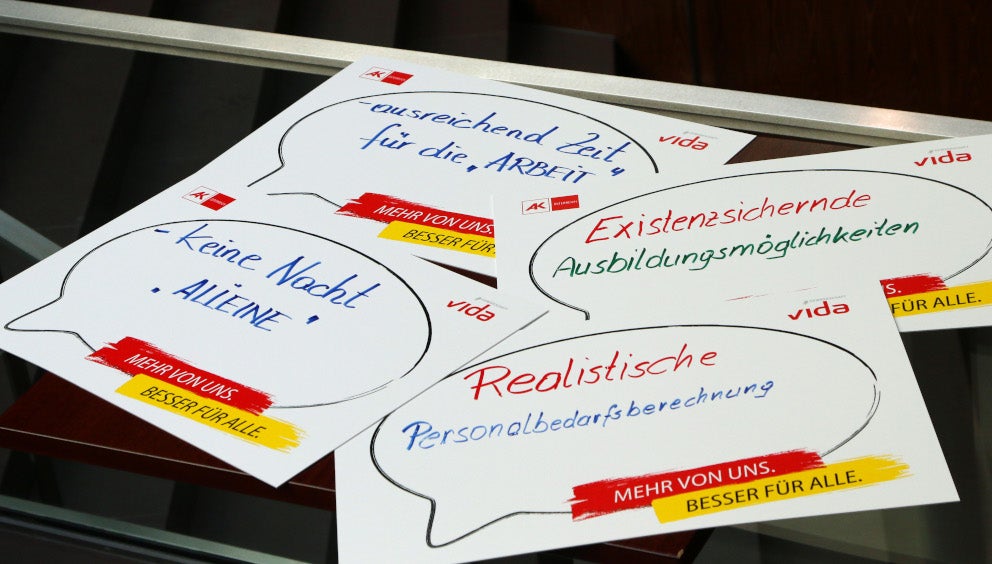 AK
- ausreichend Zeit
für die „ARBEIT"
vida
MEHR VON UNS.
BESSER FÜR
AK
- keine Nacht
„ALLEINE"
vida
MEHR VON UNS.
BESSER FÜR ALLE.
vida
AK
Existenzsichernde
Ausbildungsmöglichkeiten
S.
FÜR ALLE.
vida
Realistische
Personalbedarfsberechnung
MEHR VON UNS.
BESSER FÜR ALLE.